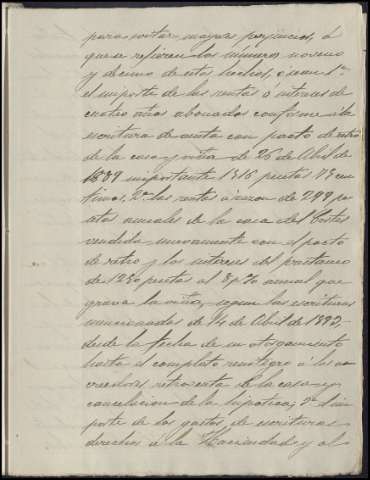 para evitar mayores perjuicios, á
que se refieren los números noveno
y décimo de estos hechos, ó sean 1º
el importe de las rentas ó intereses de
cuatro años abonados conforme á la
escritura de venta con pacto de retro
de la casa y viña de 26 de Abril de
1889 importante 1316 pesetas 73 cen
timos, 2º las rentas á razon de 299 pe
setas anuales de la casa del Cortes
vendida nuevamente con el pacto
de retro y los intereses del prestamo
de 1230 pesetas al 8 p% anual que
grava la viña, segun las escrituras
mencionadas de 14 de Abril de 1892,
desde la fecha de su otorgamiento
hasta el completo reintegro á los a
creedores retroventa de la casa y
cancelacion de la hipoteca; 3º el im
porte de los gastos de escrituras
derechos á la Hacienda y al